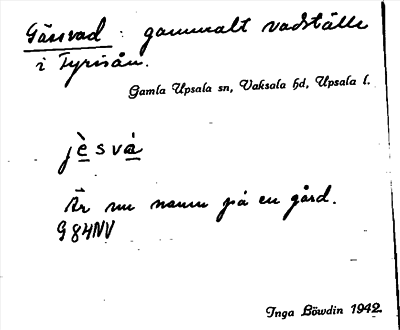 Gässvad : gammalt vadställe
i Fyrisån.
Gamla Upsala sn, Vaksala hd, Upsala l.
jèsvá
Är nu namn på en gård.
G84NV
Inga Löwdin 1942.